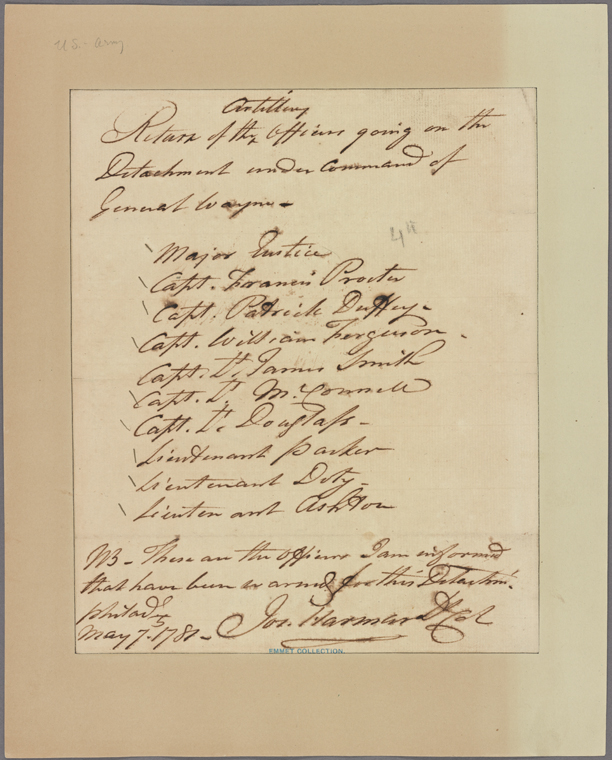 U.S. Army
Artillery
Return of the Officers going on the
Detachment under Command of
General Wayne -
4th
Major Eustice
Capt. Francis Procter
Capt. Patrick Duffey -
Capt. William Ferguson -
Capt. Lt. James Smith
Capt. Lt. McConnell
Capt. Lt. Douglass -
Lieutenant Parker
Lieutenant Doty -
Lieutenant Ashton
NB - These are the Officers I am informed
that have been warned for this Detachmt.
Philada.
May 7. 1781 - Jos. Harmar Lt Col
EMMET COLLECTION.